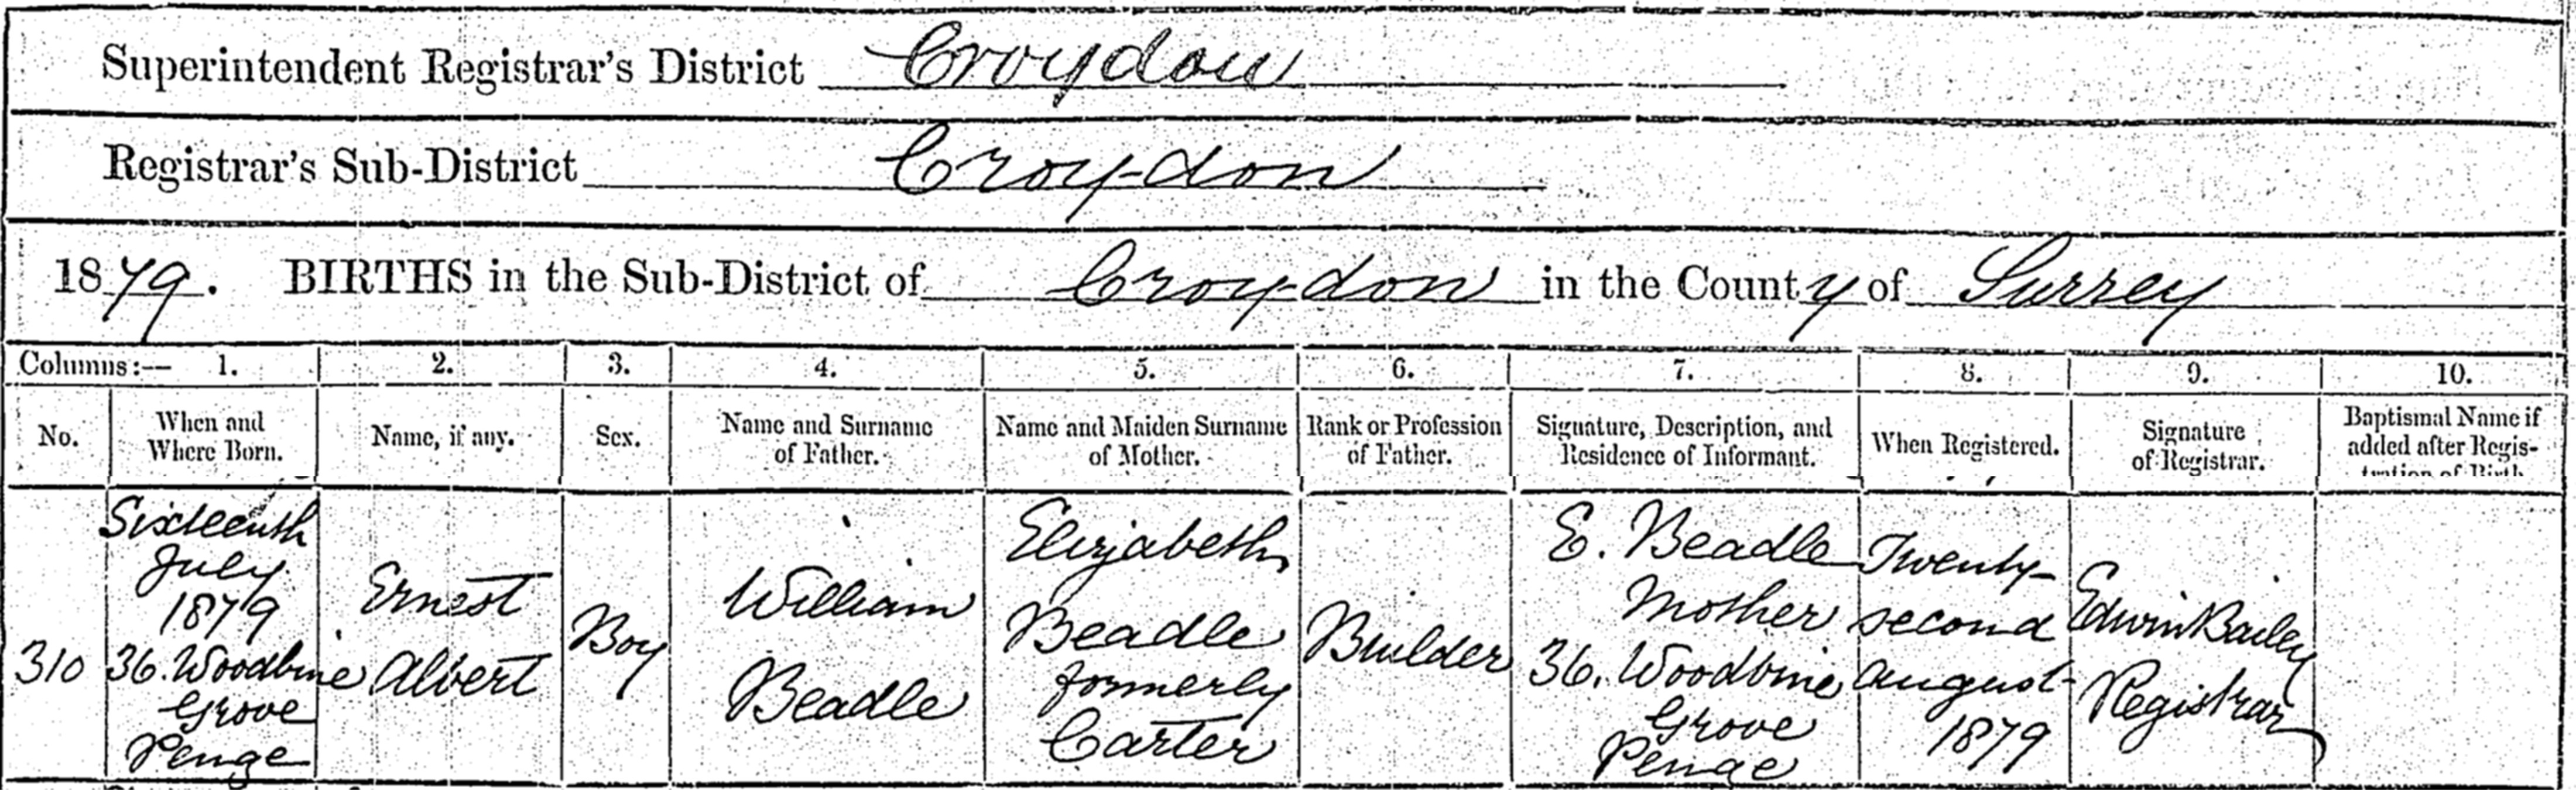 Superintendent Registrar's District Croydon
Registrar's Sub-District Croydon
1879. BIRTHS in the Sub-District of Croydon in the County of Surrey
Columns:— 1. 2. 3. 4. 5. 6. 7. 8. 9. 10.
No.
When and
Where Born.
Name, if any.
Sex.
Name and Surname
of Father.
Name and Maiden Surname
of Mother.
Rank or Profession
of Father.
Signature, Description, and
Residence of Informant.
When Registered.
Signature
of Registrar.
Baptismal Name if
added after Regis-
tration of Birth
310
Sixteenth
July
1879
36. Woodbine
Grove
Penge
Ernest
Albert
Boy
William
Beadle
Elizabeth
Beadle
formerly
Carter
Builder
E. Beadle
Mother
36. Woodbine
Grove
Penge
Twenty-
second
August
1879
Edwin Bailey
Registrar